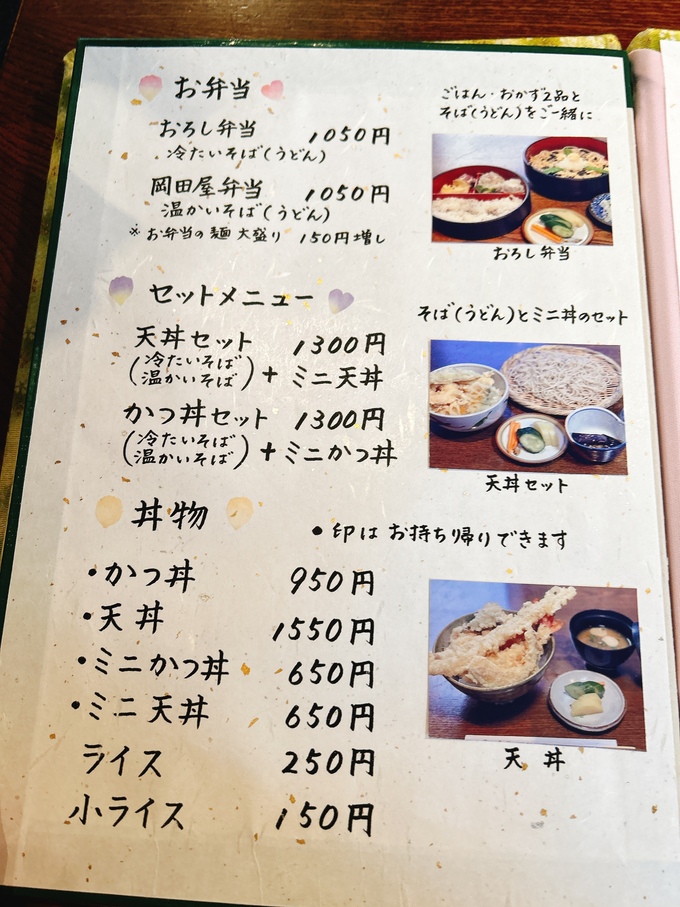 お弁当
おろし弁当 1050円
・冷たいそば(うどん)
岡田屋弁当 1050円
温かいそば(うどん)
※お弁当の麺大盛り 150円増し
ごはん・おかず2品と
そば(うどん)をご一緒に
おろし弁当
セットメニュー
天丼セット 1300円
(冷たいそば
温かいそば) + ミニ天丼
かつ丼セット 1300円
(冷たいそば
温かいそば) + ミニかつ丼
そば(うどん)とミニ丼のセット
天丼セット
丼物
●印はお持ち帰りできます
・かつ丼 950円
・天丼 1550円
・ミニかつ丼 650円
・ミニ天丼 650円
ライス 250円
小ライス 150円
天丼